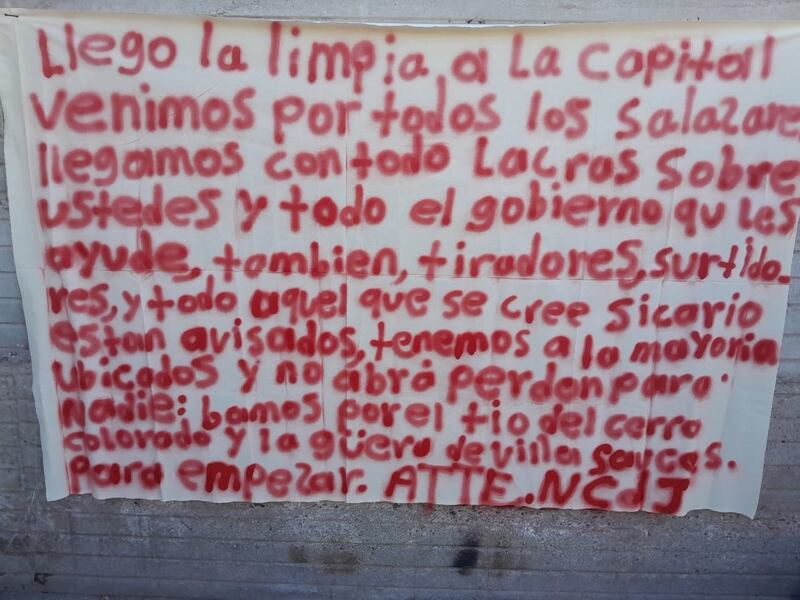 Llego la limpia a La Capital
venimos por todos los Salazare
llegamos con todo Lacras sobre
ustedes y todo el gobierno qu Les
ayude, tambien, tiradores, surtido_
res, y todo aquel que se cree sicario
estan avisados, tenemos a la mayoria
ubicados y no abrá perdon para
Nadie: bamos por el tio del cerro
colorado y la güera de villa saucas.
Para empezar. ATTE. NCdJ